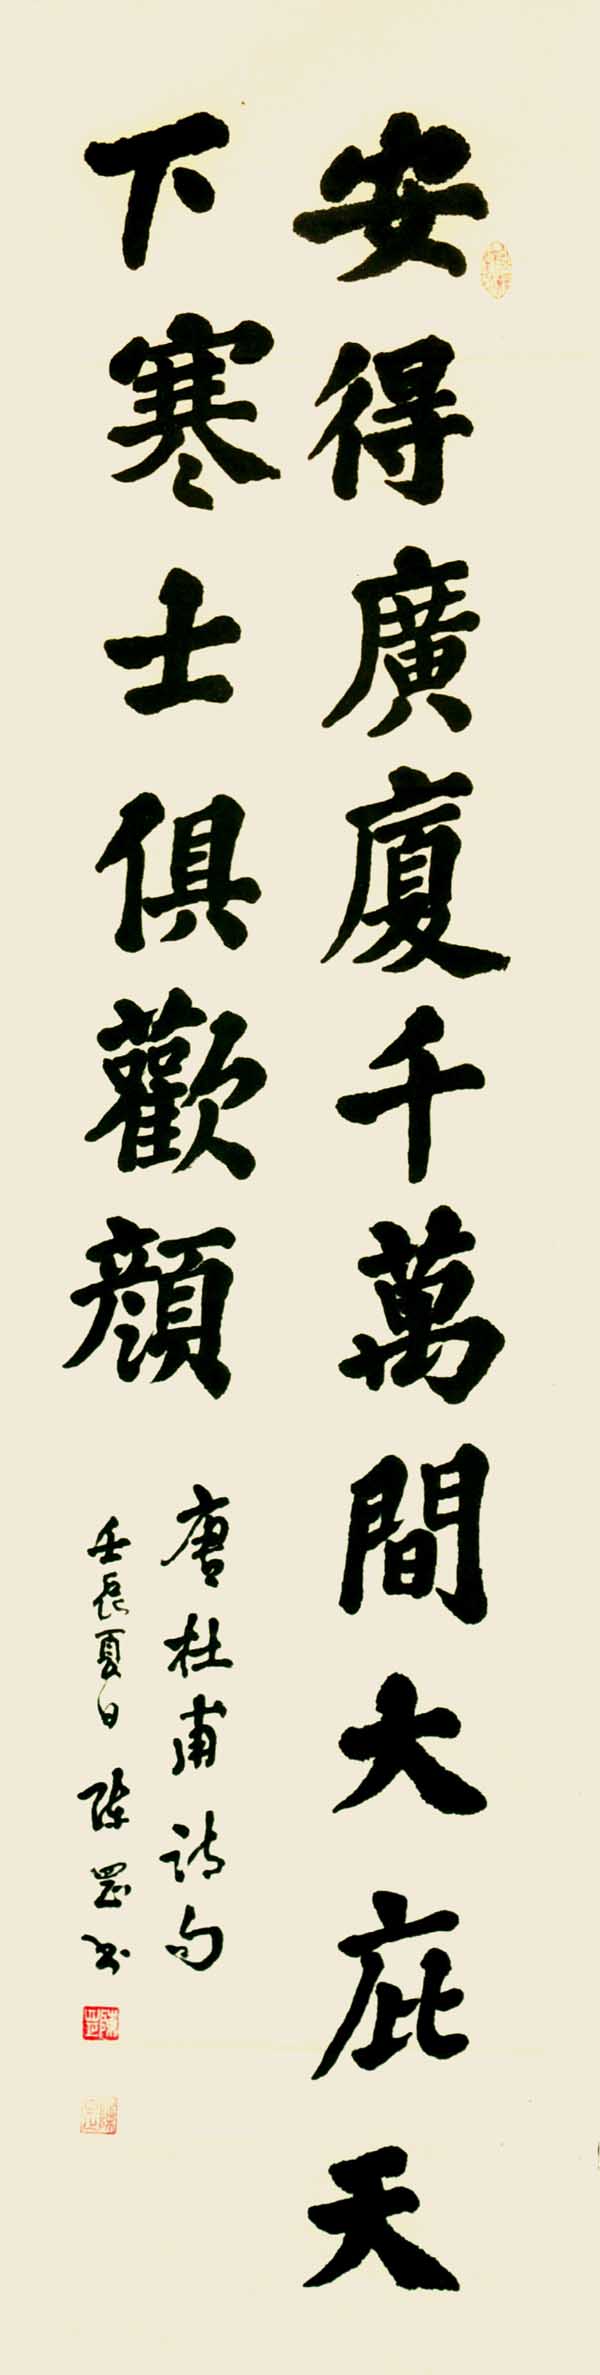 安得廣廈千萬間大庇天
下寒士俱歡顔
唐杜甫詩句
壬辰夏日陈罡书